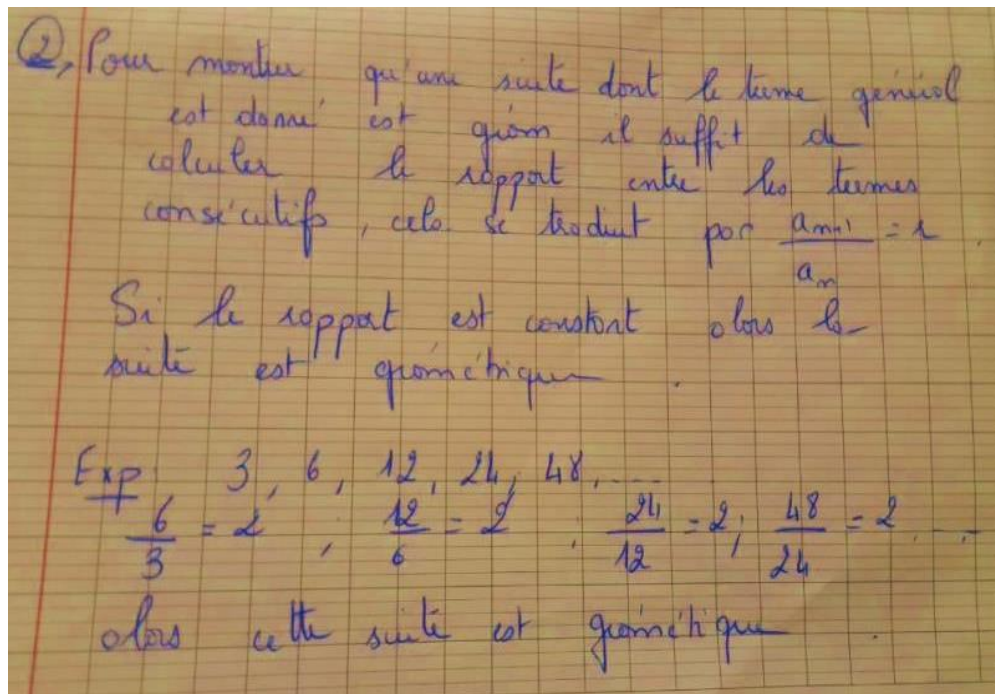 ②, Pour montrer qu'une suite dont le terme général
est donné est géom il suffit de
calculer le rapport entre les termes
consécutifs, cela se traduit par a_{n+1}/a_n = r.
Si le rapport est constant alors la
suite est géométrique.
Exp: 3, 6, 12, 24, 48, ....
6/3 = 2 ; 12/6 = 2 ; 24/12 = 2; 48/24 = 2 ....
alors cette suite est géométrique.